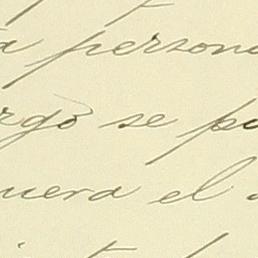 a persona
rgo se po
uera el a